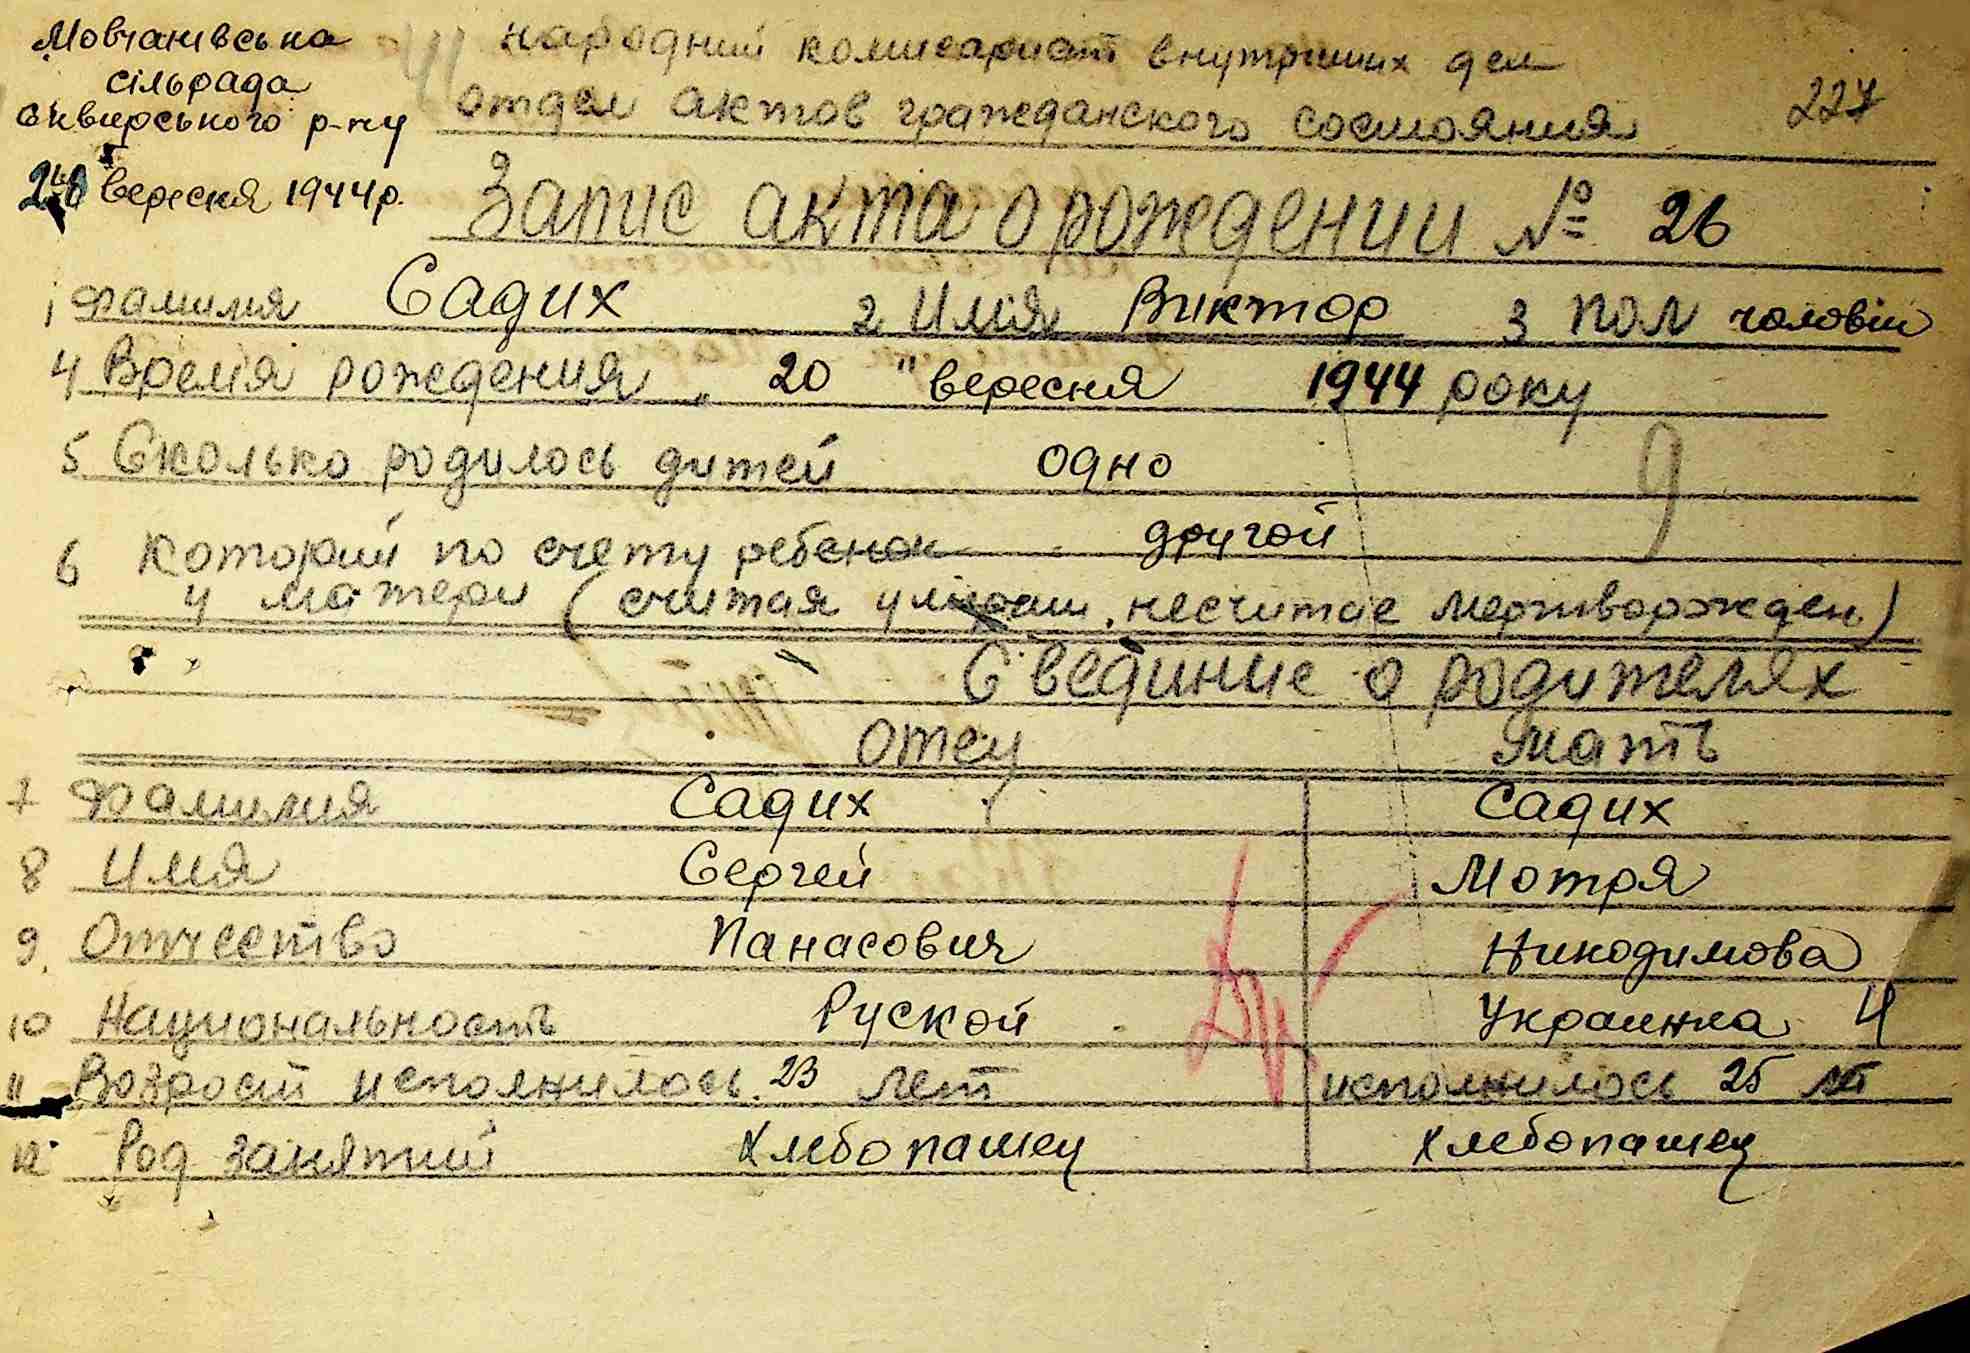 Мовчанівська
сільрада
Сквирського р-ну
вересня 1944 р.
Народний комисариат внутрших дел
отдел актов гражданского состояния
227
Запис акта о рождении № 26
1 Фамилия Садих 2 Имя Виктор 3 Пол чоловіч
4 Время рождения " 20 " вересня 1944 року
5 Сколько родилось дитей одно
6 Которий по счету ребенок другой
у матери (считая умерши, несчитае мертворожден)
Свединие о родителях
отец мать
7 Фамилия Садих Садих
8 Имя Сергей Мотря
9. Отчество Панасович Никодимова
10 Национальность Руской Украинка
11 Возраст исполнилось 23 лет исполнилось 25 лет
12 Род занятий Хлебопашец хлебопашец